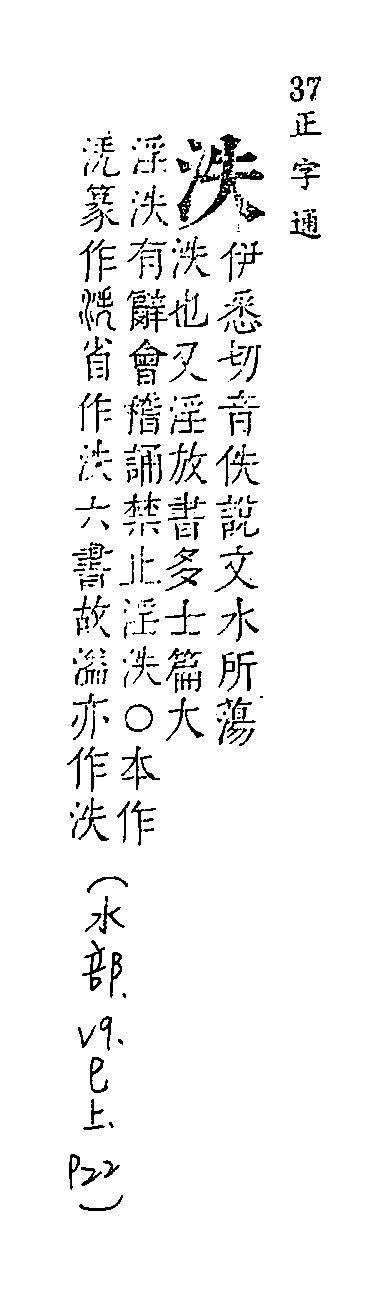 37正字通
泆
伊悉切音佚說文水所蕩
泆也又淫放書多士篇大
淫泆有辭會稽誦禁止淫泆○本作
篆作省作泆六書故溢亦作泆
(水部.V9.巳上.P22)